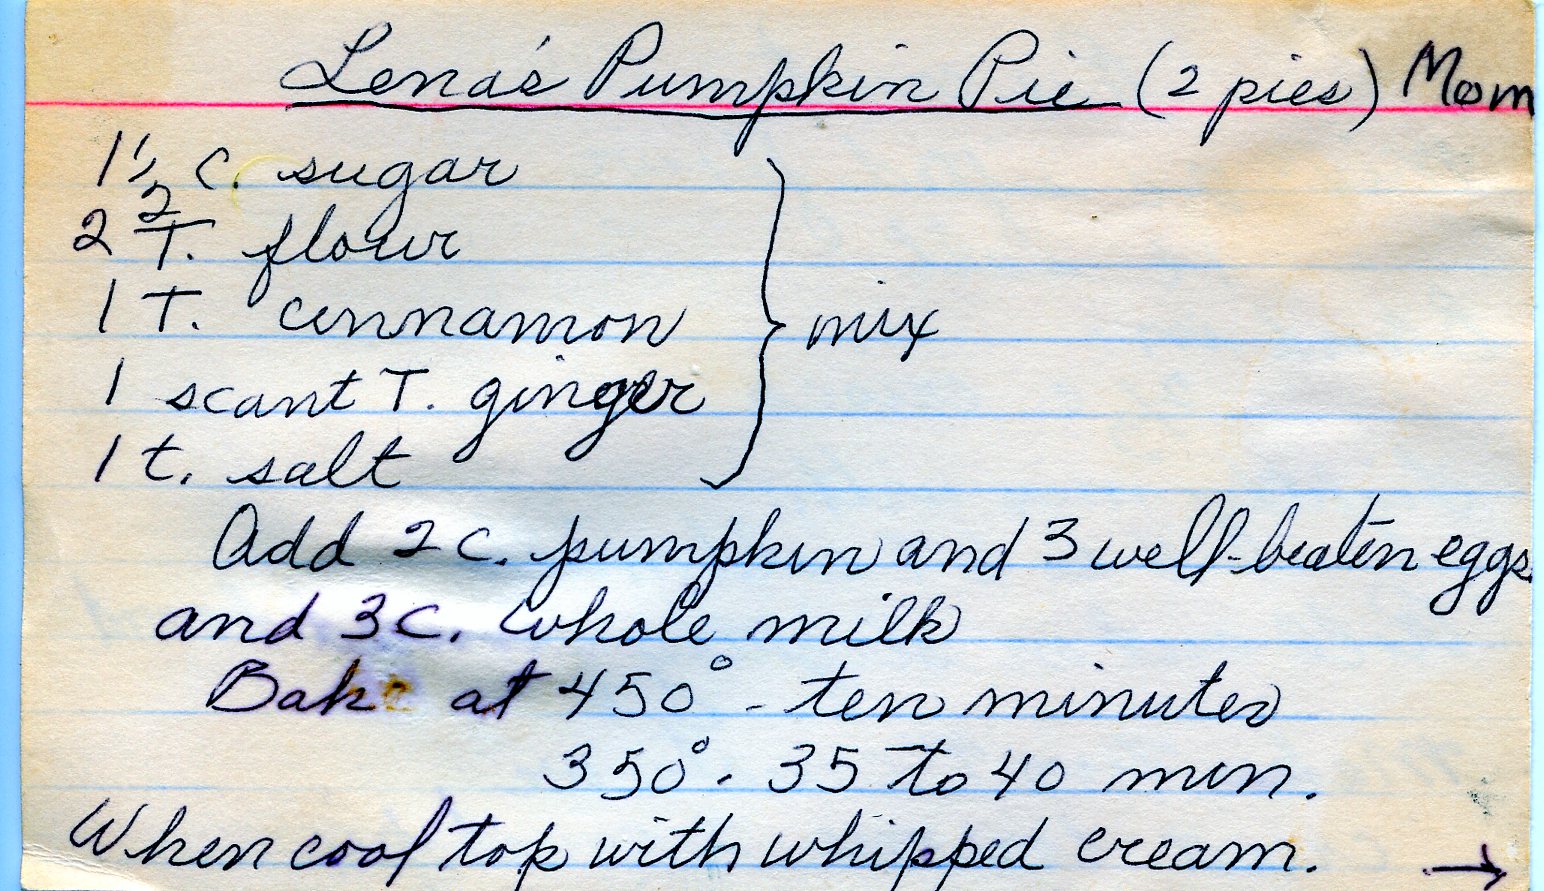 Lena's Pumpkin Pie (2 pies) Mom
1 1/2 c. sugar
2 T. flour
1 T. cinnamon
1 scant T. ginger
1 t. salt
mix
Add 2 c. pumpkin and 3 well-beaten eggs
and 3 c. whole milk
Bake at 450° - ten minutes
350° - 35 to 40 min.
When cool top with whipped cream. →